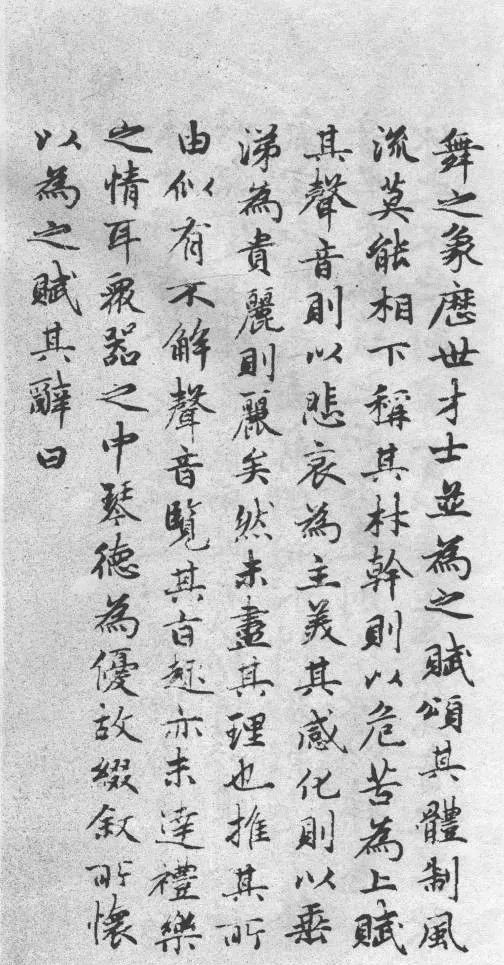 舞之象歷世才士並為之賦頌其體制風
流莫能相下稱其材幹則以危苦為上賦
其聲音則以悲哀為主美其感化則以垂
涕為貴麗則麗矣然未盡其理也推其所
由似有不解聲音覽其旨趣亦未達禮樂
之情耳衆器之中琴德為優故綴敘所懷
以為之賦其辭曰